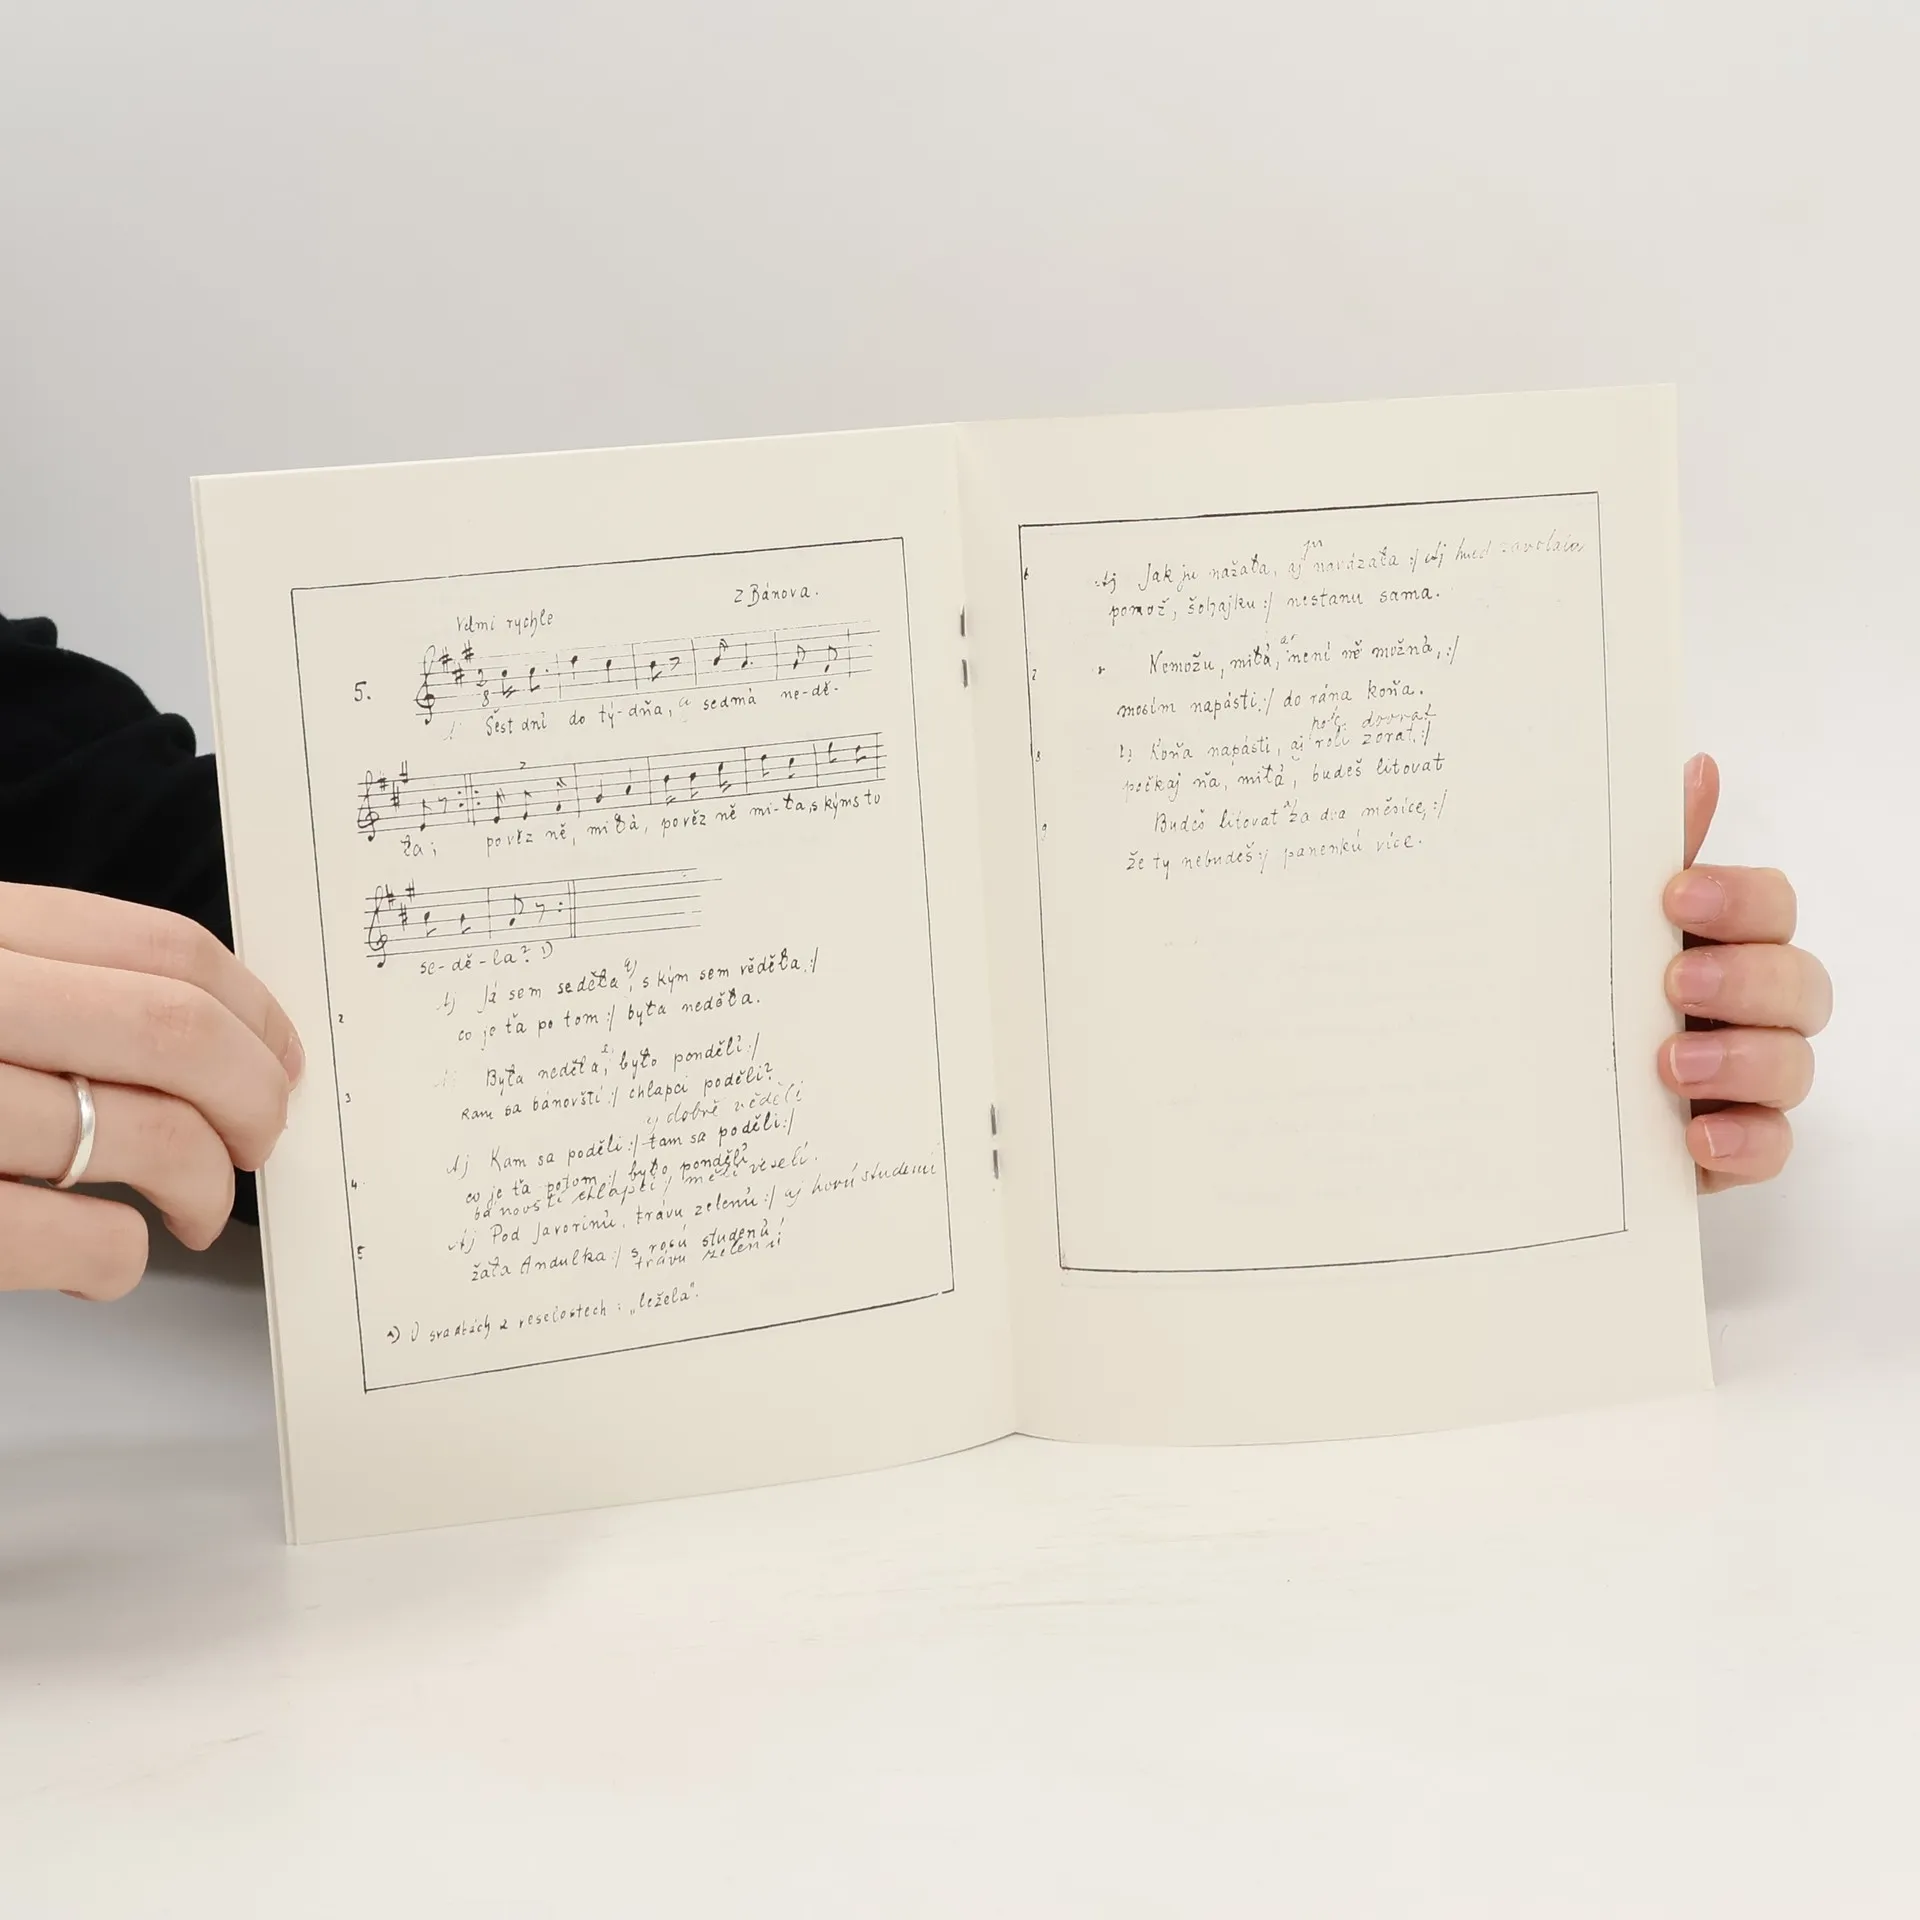 z Bánova.
Velmi rychle
5.
Šest dní do tý-dňa, a sedmá ne-dě-
ła; pověz ně, miłá, pověz ně mi-ła, s kýms to
se-dě-la? 1)
Aj Já sem seděła, s kým sem věděła :/
co je ťa po tom :/ była neděła.
2
Była neděła, było pondělí :/
kam sa bánovští :/ chlapci poděli?
3
aj dobře věděli
Aj Kam sa poděli :/ tam sa poděli :/
co je ťa potom :/ było pondělí
4.
bánovští chlapci / veselí.
Aj Pod Javorinú, trávu zelenú :/ aj horú studenú
5
žała Andulka :/ s rosú studenú
trávu zelenú
1) O svadbách a veselostech : „ležela".
Aj Jak ju nažała, aj navázała :/ Aj hned zavolała
pomož, šohajku :/ nestanu sama.
Nemožu, miłá, není ně možná, :/
7
mosím napásti :/ do rána koňa.
Koňa napásti, aj roli zorat :/
8
počkaj ňa, miłá, budeš litovat
Budeš litovat za dva měsíce, :/
9
že ty nebudeš :/ panenkú více.